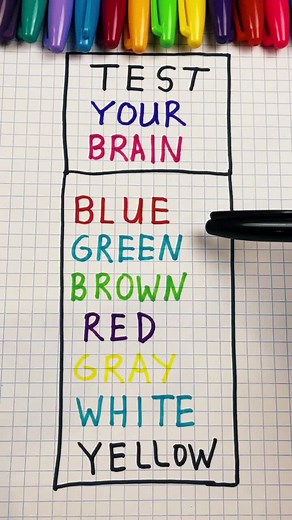 TEST
YOUR
BRAIN
BLUE
GREEN
BROWN
RED
GRAY
WHITE
YELLOW